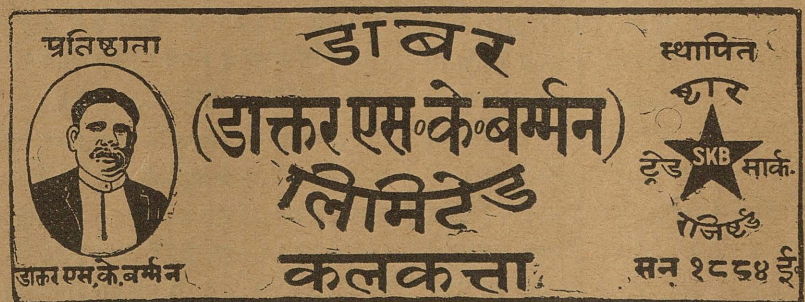 प्रतिष्ठाता
डाक्तर एस. के. बर्म्मन
डाबर
(डाक्तर एस॰ के॰ बर्म्मन)
लिमिटेड
कलकत्ता
स्थापित
ष्टार
SKB
ट्रेड मार्क.
रेजिष्टर्ड
सन १८८४ ई.